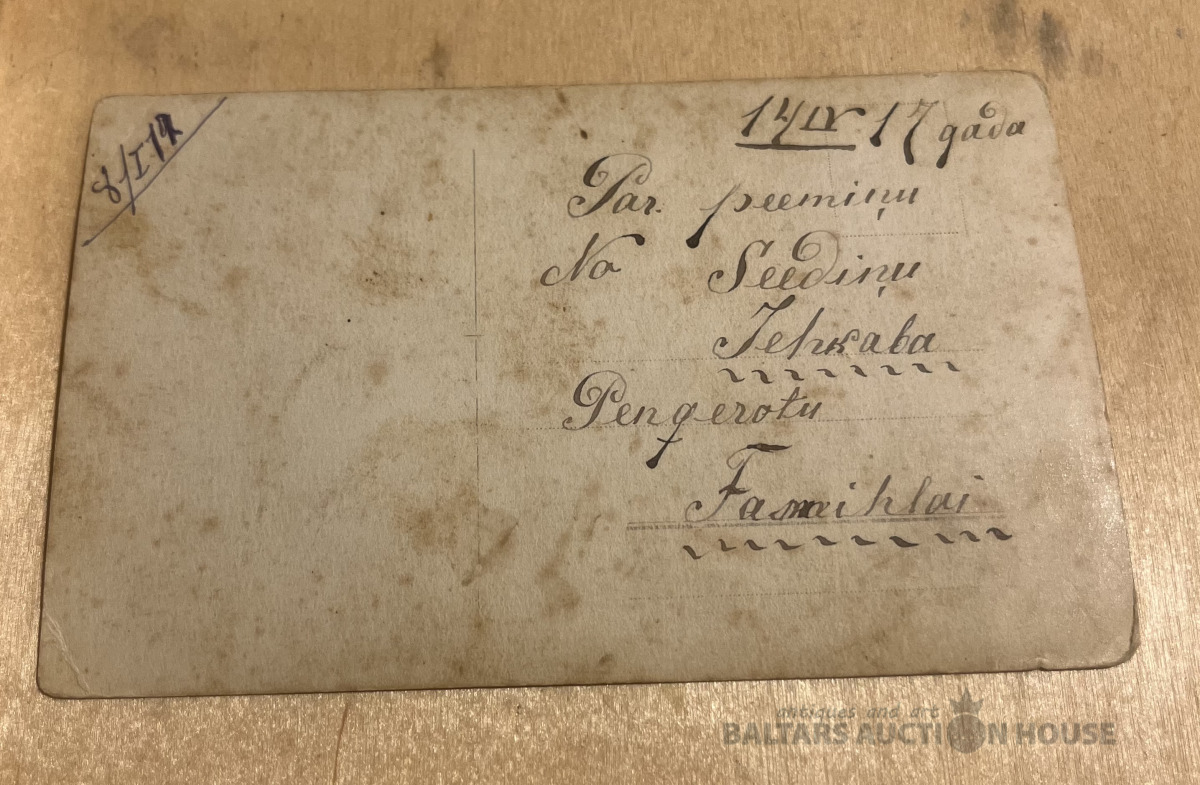 8/I 17
14/IV 17 gada
Par. peemiņu
No Seediņu
Jehkaba
Pengerotu
Famihlai
antiques and art
BALTARS AUCTION HOUSE